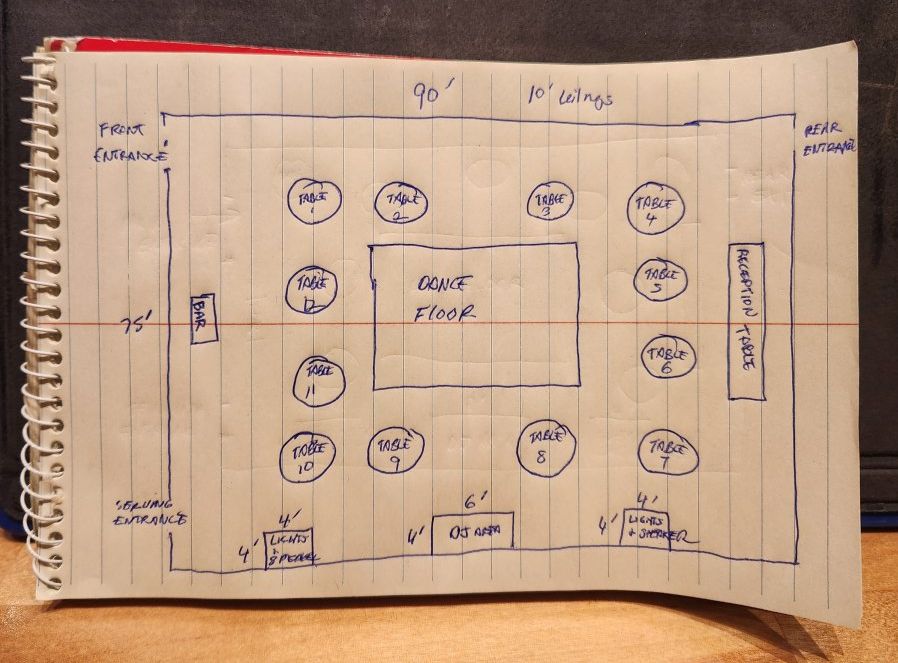 90' 10' Ceilings
FRONT
ENTRANCE
REAR
ENTRANCE
TABLE
1
TABLE
2
TABLE
3
TABLE
4
TABLE
12
DANCE
FLOOR
TABLE
5
RECEPTION TABLE
BAR
75'
TABLE
6
TABLE
11
TABLE
10
TABLE
9
TABLE
8
TABLE
7
SERVING
ENTRANCE
4'
4'
LIGHTS
+
SPEAKER
6'
4'
DJ AREA
4'
4'
LIGHTS
+ SPEAKER